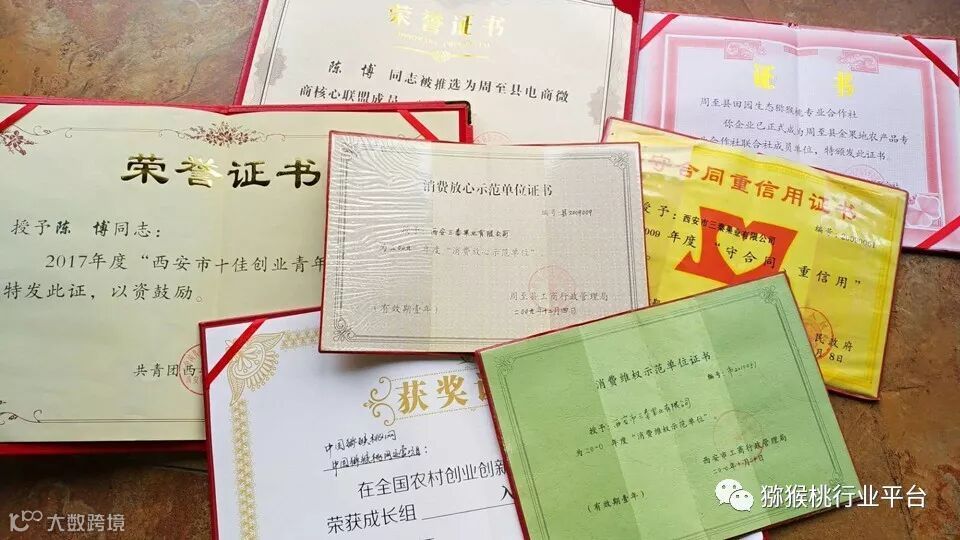 荣誉证书
陈 博 同志被推选为周至县电商微
商核心联盟成员
证 书
周至县田园生态猕猴桃专业合作社
你企业已正式成为周至县金果地农产品专
业合作社联合社成员单位,特颁发此证书。
荣誉证书
授予陈 博同志:
2017年度“西安市十佳创业青年
特发此证,以资鼓励。
共青团西
消费放心示范单位证书
编号:县2009009
授予:西安三秦果业有限公司
为二00九 年度“消费放心示范单位”
(有效期壹年)
周至县工商行政管理局
守合同重信用证书
授予:西安市三秦果业有限公司
编号:
2009 年度“守合同 重信用”
民政府
月8日
获奖证
中国猕猴桃网
在全国农村创业创新
荣获成长组
入
消费维权示范单位证书
授予:西安市三秦果业有限公司
年度“消费维权示范单位”。
西安市工商行政管理局
(有效期壹年)
猕猴桃行业平台
大数跨境